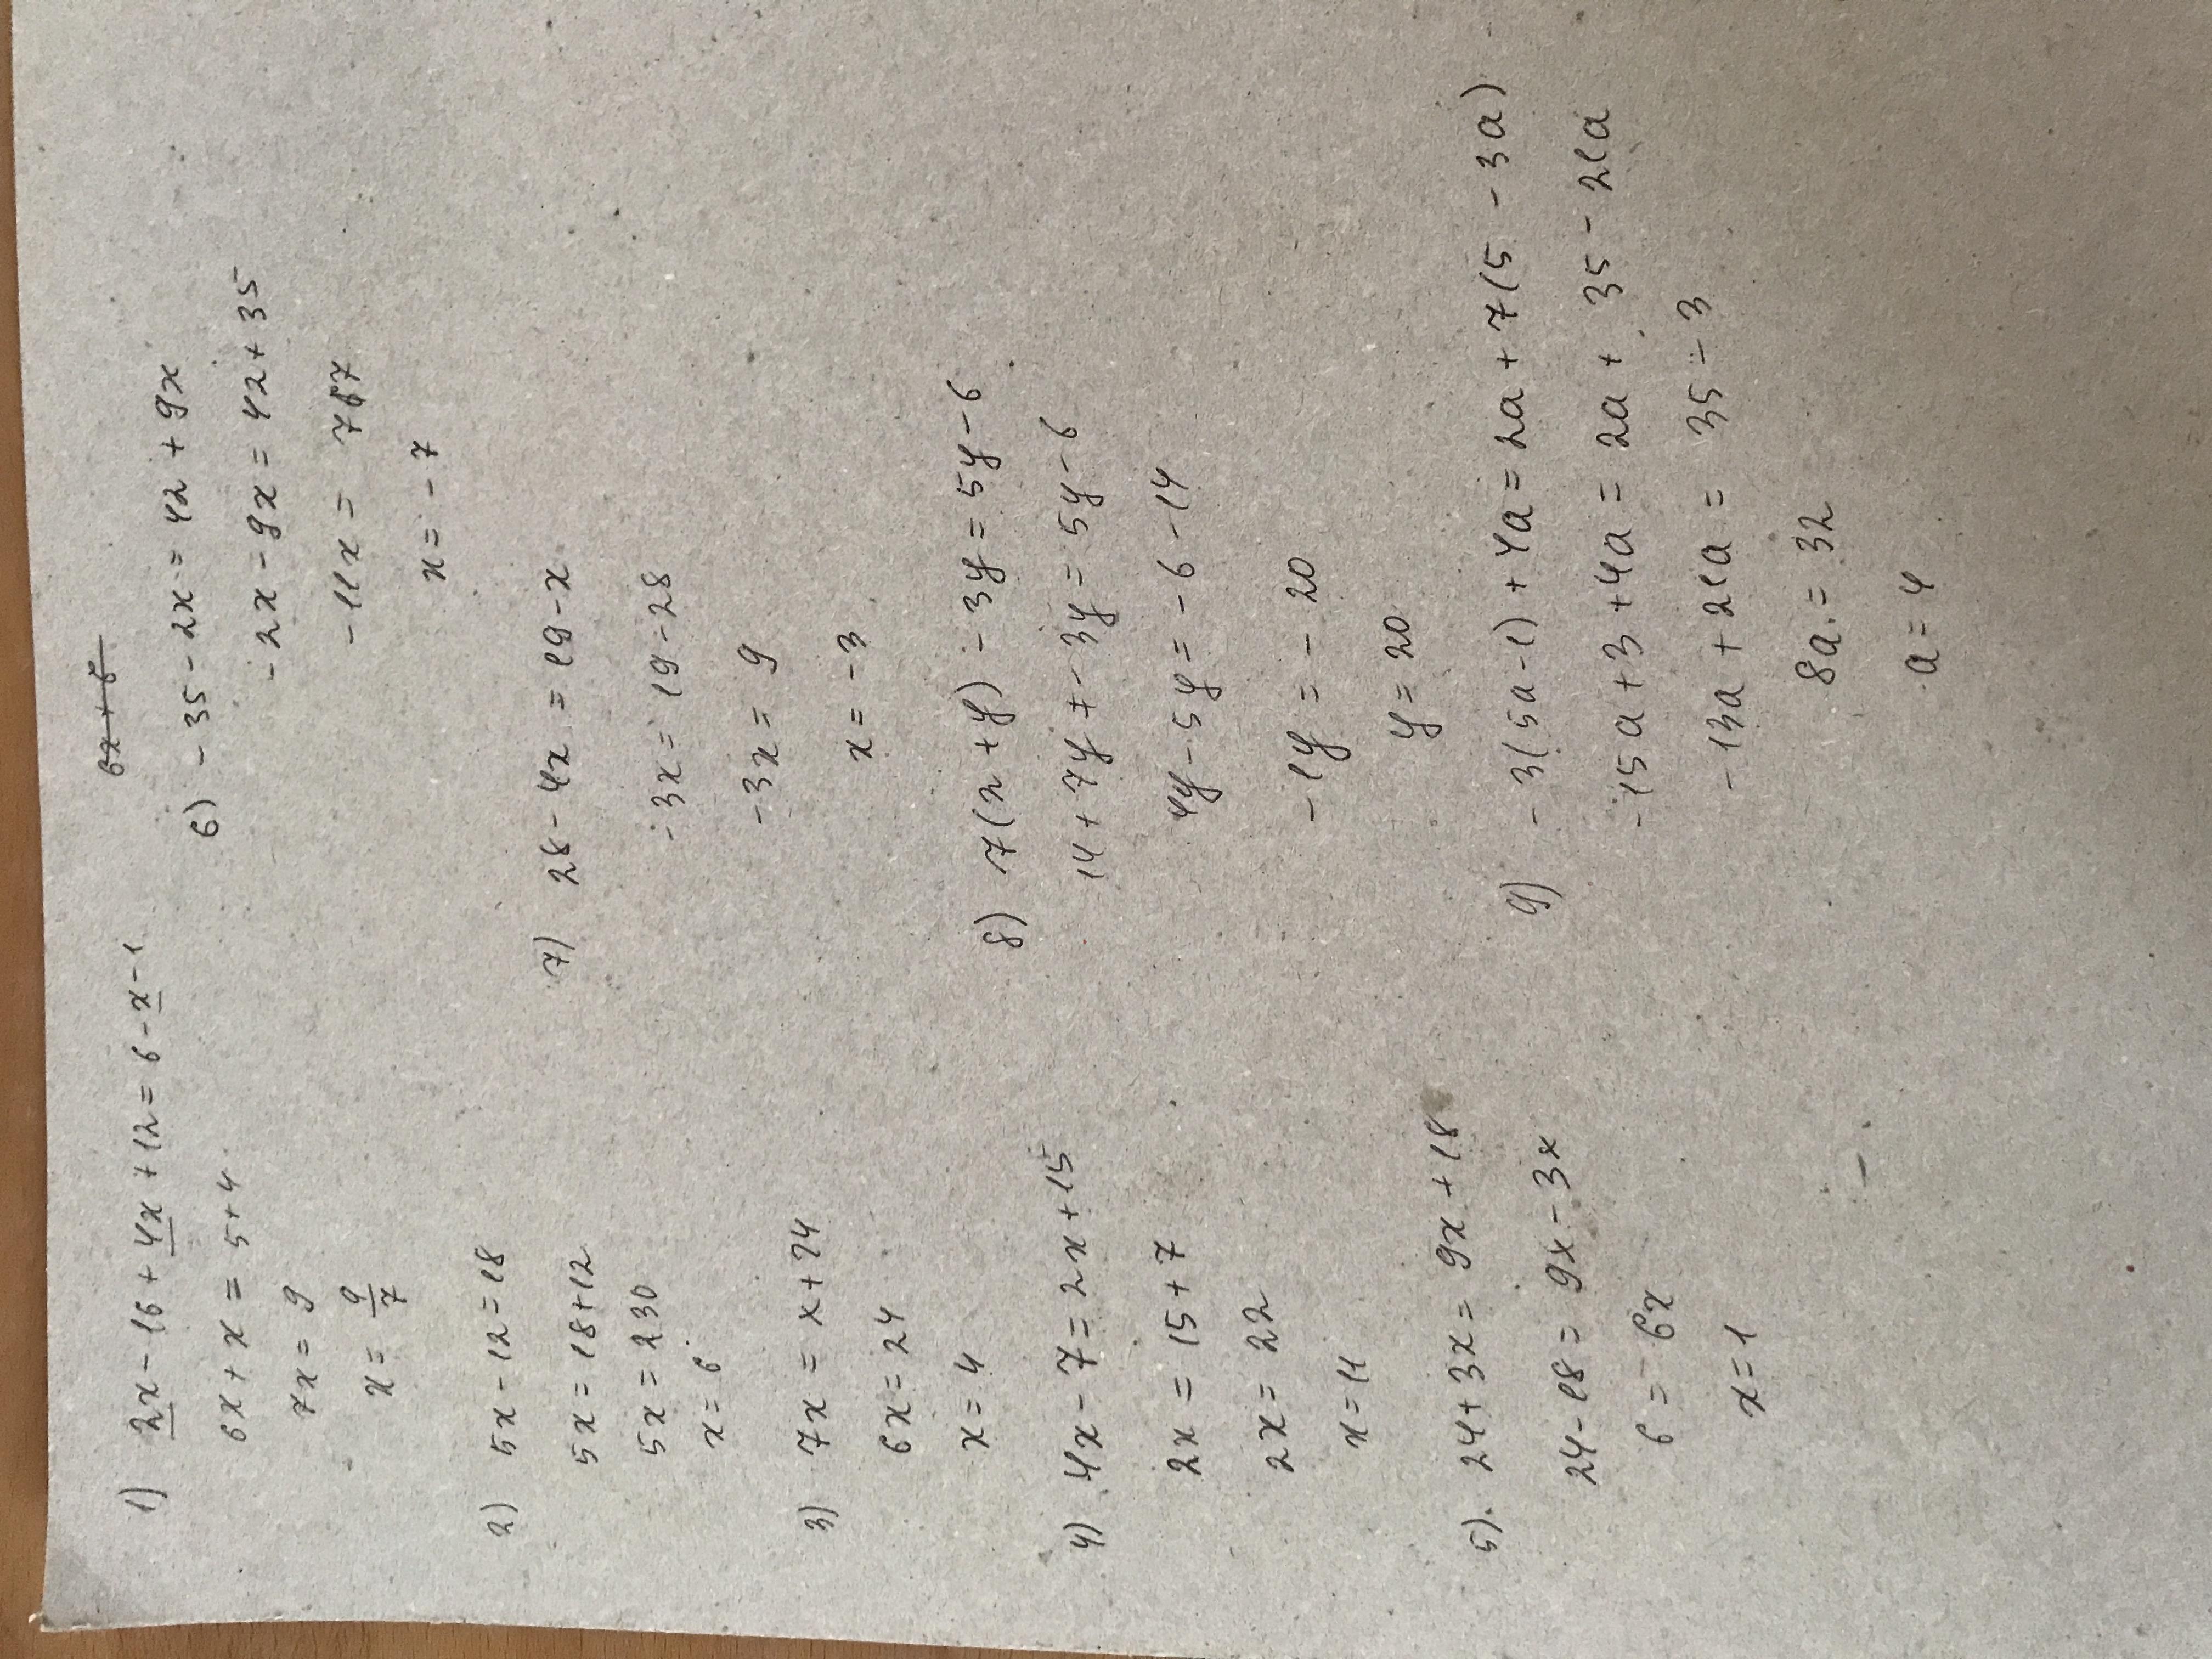 1) 2x - 16 + 4x + 12 = 6 - x - 1
6x + x = 5 + 4
7x = 9
x = 9/7
2) 5x - 12 = 18
5x = 18 + 12
5x = 230
x = 6
3) 7x = x + 24
6x = 24
x = 4
4) 4x - 7 = 2x + 15
2x = 15 + 7
2x = 22
x = 11
5). 24 + 3x = 9x + 18
24 - 18 = 9x - 3x
6 = 6x
x = 1
6) - 35 - 2x = 42 + 9x
- 2x - 9x = 42 + 35
- 11x = 77
x = - 7
7) 28 - 4x = 19 - x
- 3x = 19 - 28
- 3x = 9
x = - 3
8) 7(2 + y) - 3y = 5y - 6
14 + 7y + - 3y = 5y - 6
4y - 5y = - 6 - 14
- 1y = - 20
y = 20
9) - 3(5a - 1) + 4a = 2a + 7(5 - 3a)
- 15a + 3 + 4a = 2a + 35 - 21a
- 13a + 21a = 35 - 3
8a = 32
a = 4